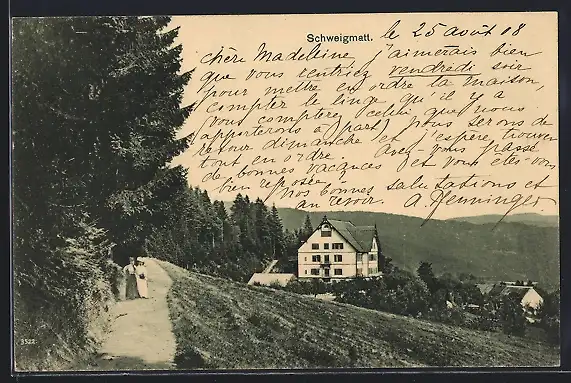 Schweigmatt. le 25 août 08
chère Madeleine, j'aimerais bien
que vous rentriez vendredi soir
pour mettre en ordre la maison,
compter le linge qu'il y a
(vous compterez celui que nous
apporterons à part) nous serons de
retour dimanche et j'espère trouver
tout en ordre. avez-vous passé
de bonnes vacances et vous êtes-vous
bien reposée?
nos bonnes salutations et
au revoir. A. Henninger
3522